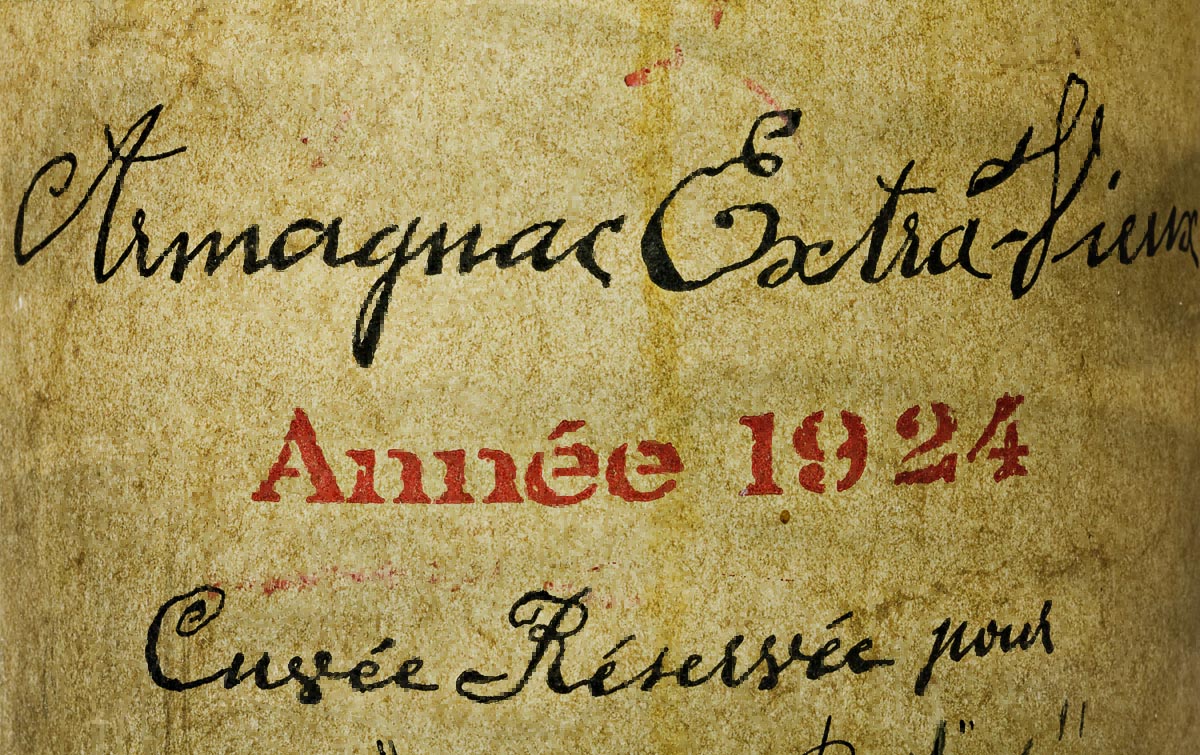 Armagnac Extra-Vieux
Année 1924
Cuvée Réservée pour